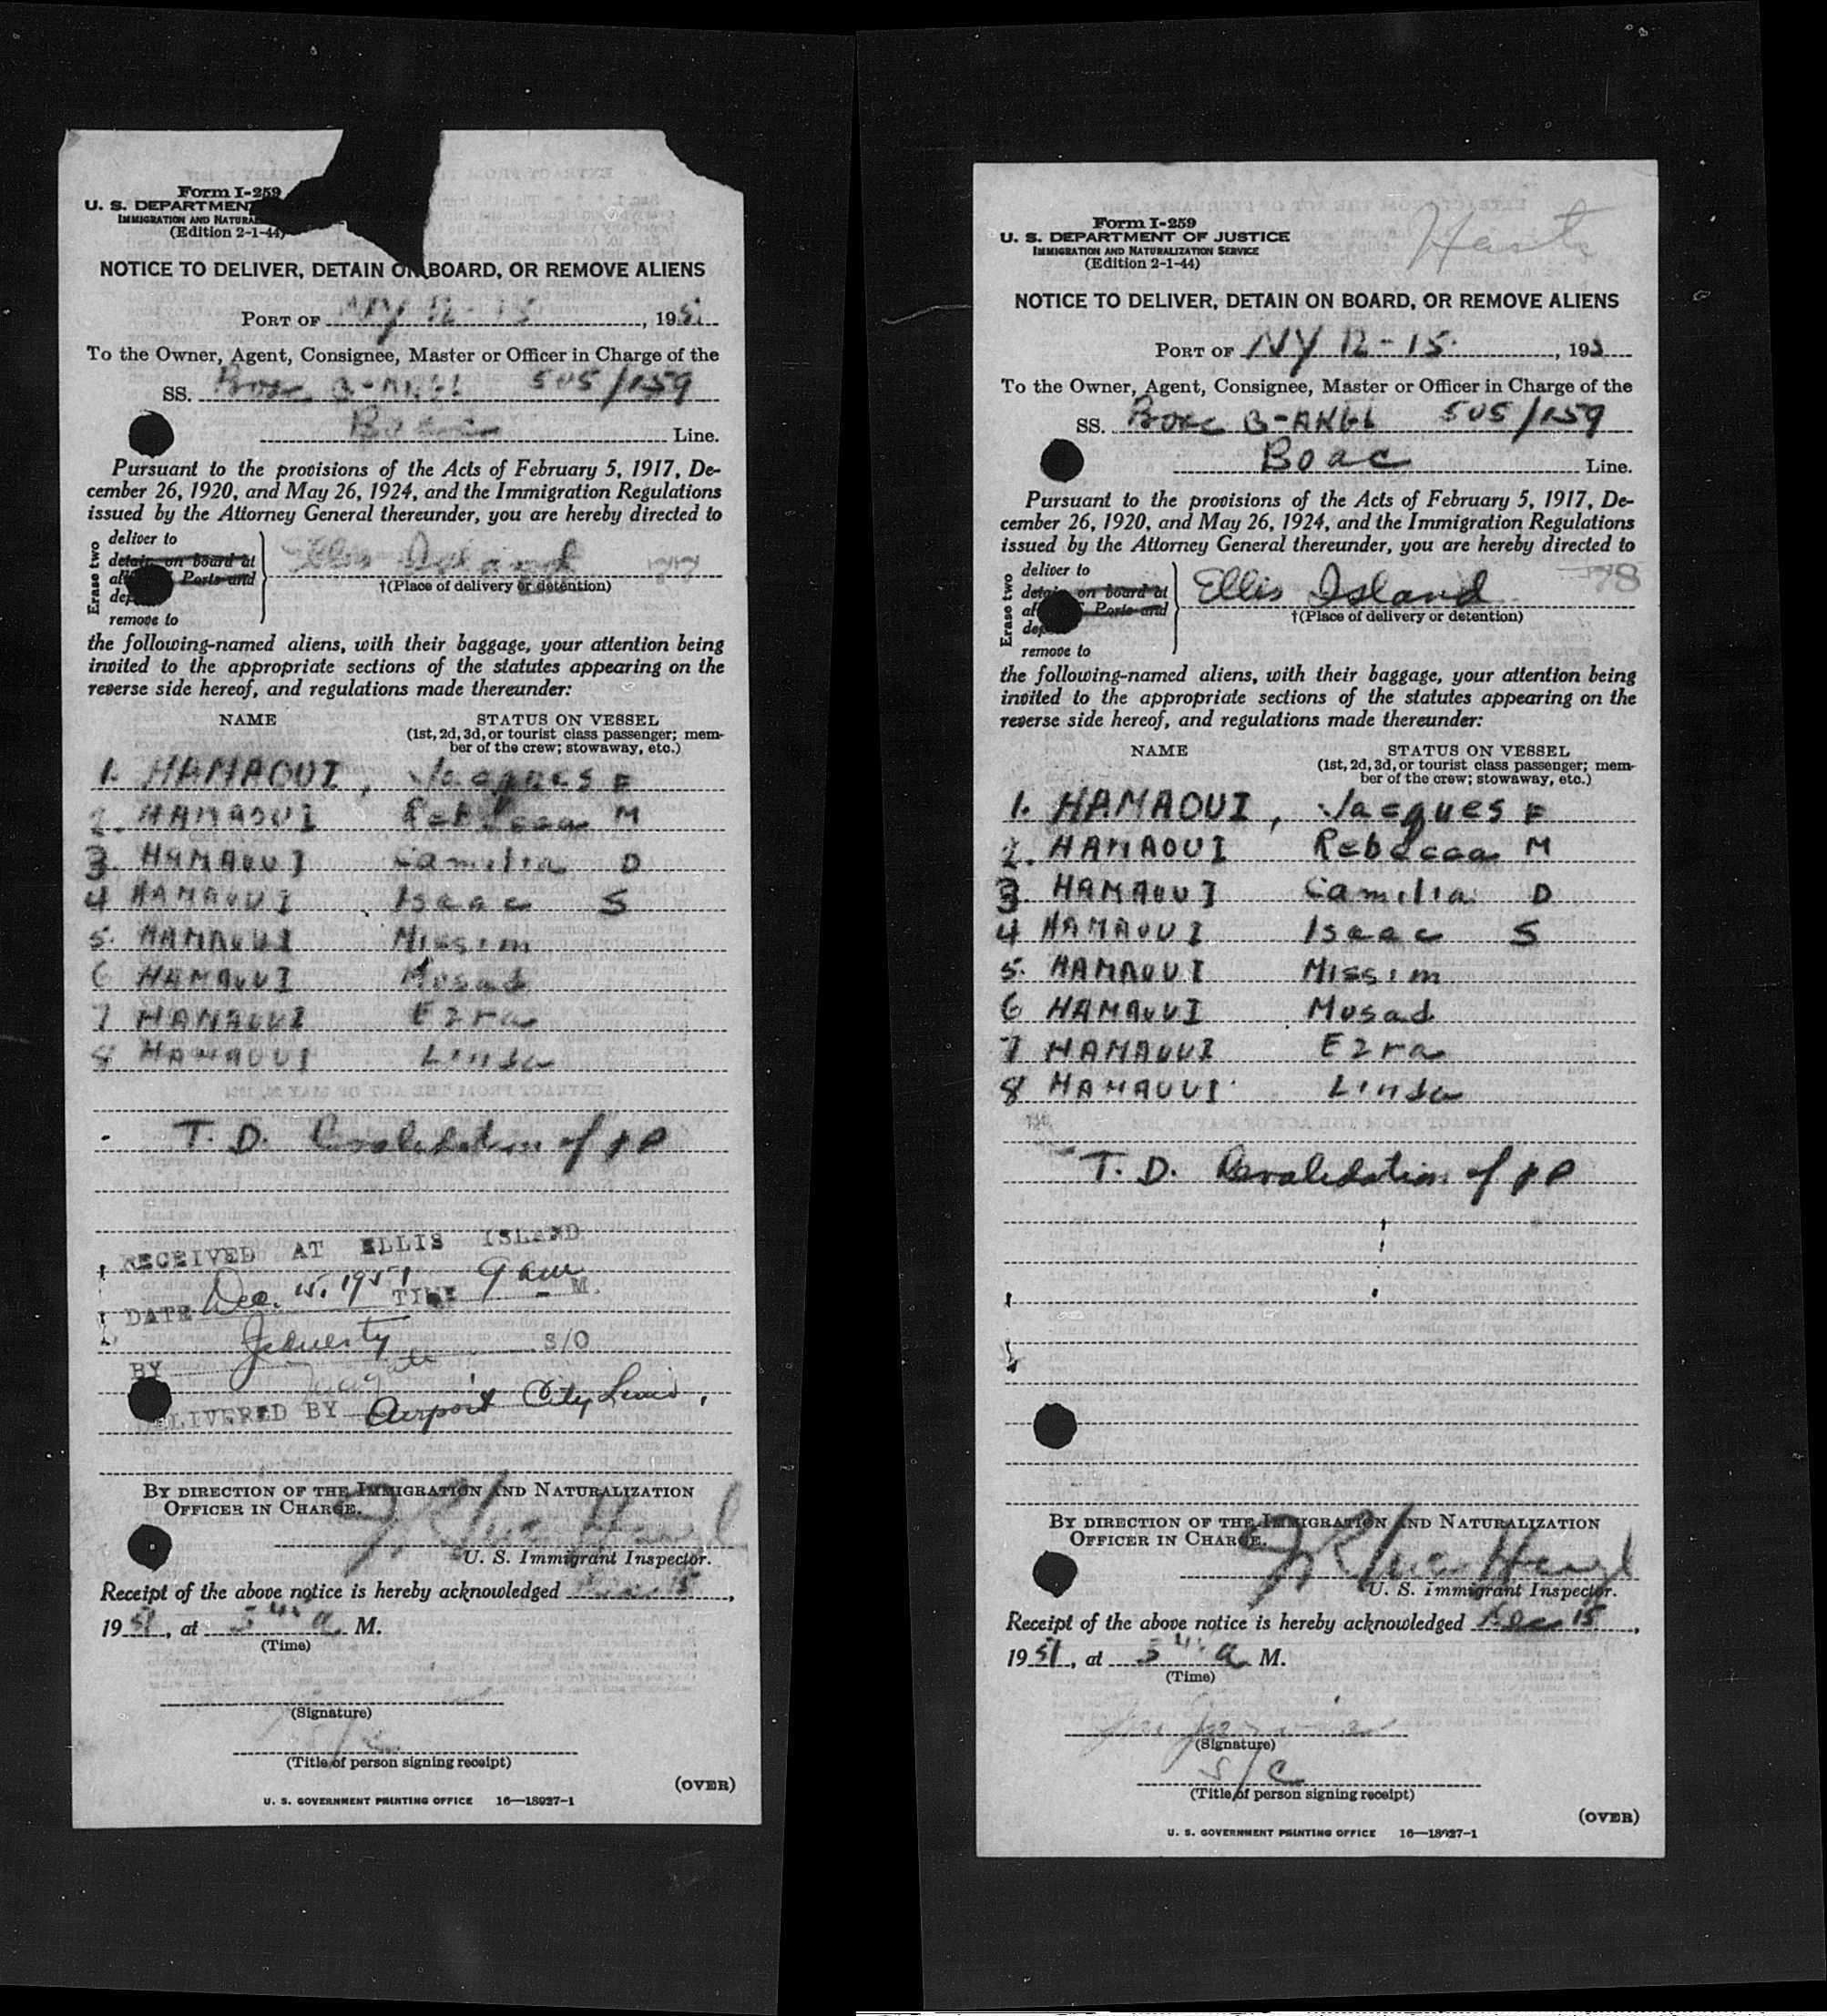 Form I-259
U. S. DEPARTMEN
IMMIGRATION AND NATURA
(Edition 2-1-44)
NOTICE TO DELIVER, DETAIN ON BOARD, OR REMOVE ALIENS
PORT OF NY 12-15, 1951
To the Owner, Agent, Consignee, Master or Officer in Charge of the
SS. Boac 505/159
Boac Line.
Pursuant to the provisions of the Acts of February 5, 1917, De-
cember 26, 1920, and May 26, 1924, and the Immigration Regulations
issued by the Attorney General thereunder, you are hereby directed to
Erase two
deliver to
detain on board at
Ports and
remove to
Ellis Island
†(Place of delivery or detention)
the following-named aliens, with their baggage, your attention being
invited to the appropriate sections of the statutes appearing on the
reverse side hereof, and regulations made thereunder:
NAME STATUS ON VESSEL
(1st, 2d, 3d, or tourist class passenger; mem-
ber of the crew; stowaway, etc.)
1. HAMAOUI, Jacques F
2. HAMAOUI Rebecca M
3. HAMAOUI Camilia D
4 HAMAOUI Isaac S
5. HAMAOUI Missim
6 HAMAOUI Musad
7 HAMAOUI Ezra
8 HAMAOUI Linda
T. D. Revalidation of
RECEIVED AT ELLIS ISLAND
DATE Dec. 15, 1951 TIME 9 am M.
BY S/O
DELIVERED BY Airport City
BY DIRECTION OF THE IMMIGRATION AND NATURALIZATION
OFFICER IN CHARGE.
U. S. Immigrant Inspector.
Receipt of the above notice is hereby acknowledged Dec 15,
1951, at a M.
(Time)
(Signature)
S/C
(Title of person signing receipt)
(OVER)
U. S. GOVERNMENT PRINTING OFFICE 16—18927-1
Form I-259
U. S. DEPARTMENT OF JUSTICE
IMMIGRATION AND NATURALIZATION SERVICE
(Edition 2-1-44)
NOTICE TO DELIVER, DETAIN ON BOARD, OR REMOVE ALIENS
PORT OF NY 12-15, 195
To the Owner, Agent, Consignee, Master or Officer in Charge of the
SS. Boac 505/159
Boac Line.
Pursuant to the provisions of the Acts of February 5, 1917, De-
cember 26, 1920, and May 26, 1924, and the Immigration Regulations
issued by the Attorney General thereunder, you are hereby directed to
Erase two
deliver to
detain on board at
Ports and
remove to
Ellis Island
78
†(Place of delivery or detention)
the following-named aliens, with their baggage, your attention being
invited to the appropriate sections of the statutes appearing on the
reverse side hereof, and regulations made thereunder:
NAME STATUS ON VESSEL
(1st, 2d, 3d, or tourist class passenger; mem-
ber of the crew; stowaway, etc.)
1. HAMAOUI, Jacques F
2. HAMAOUI Rebecca M
3. HAMAOUI Camilia D
4 HAMAOUI Isaac S
5. HAMAOUI Missim
6 HAMAOUI Musad
7 HAMAOUI Ezra
8 HAMAOUI Linda
T. D. Revalidation of
BY DIRECTION OF THE IMMIGRATION AND NATURALIZATION
OFFICER IN CHARGE.
U. S. Immigrant Inspector.
Receipt of the above notice is hereby acknowledged Dec 15,
1951, at a M.
(Time)
(Signature)
S/C
(Title of person signing receipt)
(OVER)
U. S. GOVERNMENT PRINTING OFFICE 16—18927-1